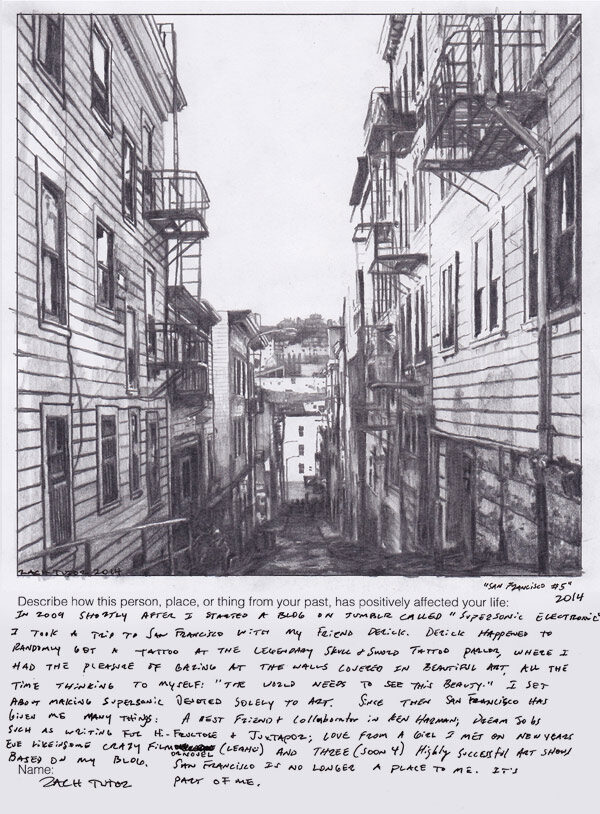 ZACH TUTOR 2014
"SAN FRANCISCO #5"
2014
Describe how this person, place, or thing from your past, has positively affected your life:
IN 2009 SHORTLY AFTER I STARTED A BLOG ON TUMBLR CALLED "SUPERSONIC ELECTRONIC"
I TOOK A TRIP TO SAN FRANCISCO WITH MY FRIEND DERICK. DERICK HAPPENED TO
RANDOMLY GET A TATTOO AT THE LEGENDARY SKULL & SWORD TATTOO PARLOR, WHERE I
HAD THE PLEASURE OF GAZING AT THE WALLS COVERED IN BEAUTIFUL ART, ALL THE
TIME THINKING TO MYSELF: "THE WORLD NEEDS TO SEE THIS BEAUTY." I SET
ABOUT MAKING SUPERSONIC DEVOTED SOLELY TO ART. SINCE THEN SAN FRANCISCO HAS
GIVEN ME MANY THINGS: A BEST FRIEND & COLLABORATOR IN KEN HARMAN, DREAM JOBS
SUCH AS WRITING FOR HI-FRUCTOSE & JUXTAPOZ; LOVE FROM A GIRL I MET ON NEW YEARS
EVE LIKE IN SOME CRAZY FILM OR NOVEL (LEAH) AND THREE (SOON 4) HIGHLY SUCCESSFUL ART SHOWS
BASED ON MY BLOG. SAN FRANCISCO IS NO LONGER A PLACE TO ME. IT'S
PART OF ME.
Name:
ZACH TUTOR